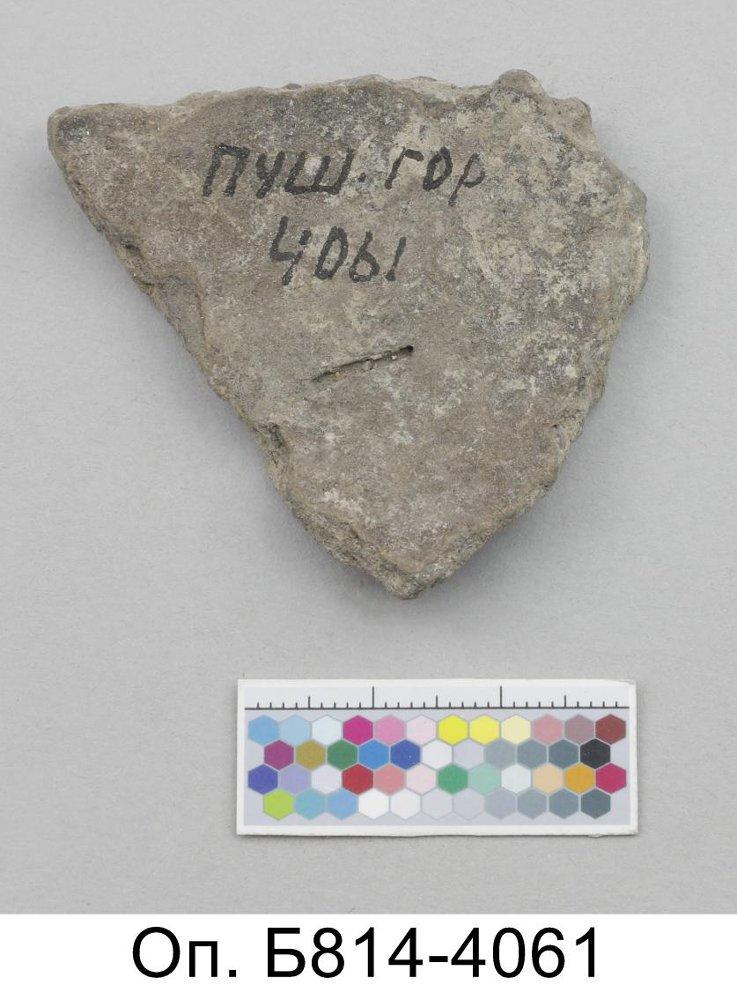 пуш. гор
4061
Оп. Б814-4061